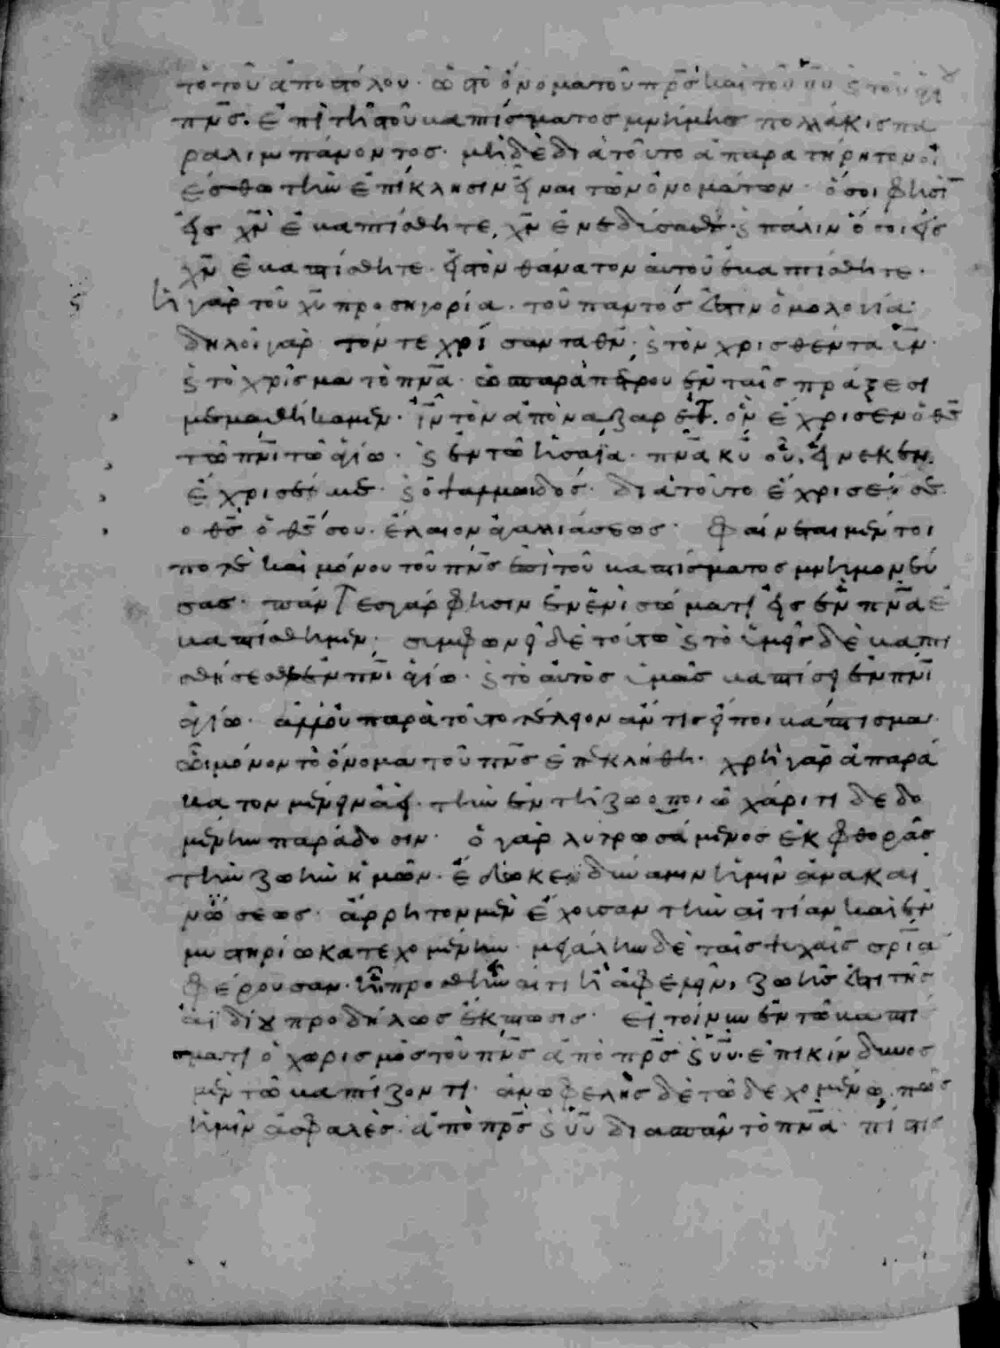 το τοῦ ἀποστόλου· ὡς τὸ ὄνομα τοῦ πρς καὶ τοῦ υυ ς τοῦ ἁγί
πνς. ἐπὶ τῆς τοῦ βαπτίσματος μνήμης πολλάκις πα
ραλιμπάνοντος· μηδὲ διὰ τοῦτο ἀπαρατήρητον οἴ
εσθω τὴν ἐπίκλησιν εἶναι τῶν ὀνομάτων· ὅσοι φησὶ
εἰς χν ἐβαπτίσθητε, χν ἐνεδύσασθε· ς πάλιν ὅσοι εἰς
χν ἐβαπτίσθητε· εἰς τὸν θάνατον αὐτοῦ ἐβαπτίσθητε·
ἡ γὰρ τοῦ χυ προσηγορία· τοῦ παντός ἐστιν ὁμολογία·
δηλοῖ γὰρ τόν τε χρίσαντα θν, ς τὸν χρισθέντα υν·
ς τὸ χρῖσμα τὸ πνα· ὡς παρὰ πέτρου ἐν ταῖς πράξεσι
μεμαθήκαμεν· ιν τὸν ἀπὸ ναζαρέτ. ὃν ἔχρισεν ὁ θς
τῶ πνι τῶ ἁγίω· ς ἐν τῶ ἡσαΐα· πνα κυ οὗ εἵνεκεν
ἔχρισέ με· ς ὁ ψαλμωδός· διὰ τοῦτο ἔχρισέν σε
ο θς ὁ θς σου· ἔλαιον ἀγαλλιάσεως· φαίνεται μέντοι
ποτὲ καὶ μόνου τοῦ πνς ἐπὶ τοῦ βαπτίσματος μνημονεύ
σας· πάντες γὰρ φησιν ἐν ἑνὶ σώματι εἰς ἓν πνα ἐ
βαπτίσθημεν· συμφωνεῖ δὲ τούτω ς τὸ ὑμεῖς δὲ βαπτι
σθήσεσθε ἐν πνι ἁγίω· ς τὸ αὐτὸς ὑμᾶς βαπτίσει ἐν πνι
ἁγίω· ἀλλ' οὐ παρὰ τοῦτο τέλειον ἄν τις εἴποι βάπτισμα
ὧ μόνον τὸ ὄνομα τοῦ πνς ἐπεκλήθη· χρὴ γὰρ ἀπαρά
βατον μένειν ἀεί· τὴν ἐν τῆ ζωοποιῶ χάριτι δεδο
μένην παράδοσιν· ὁ γὰρ λυτρωσάμενος ἐκ φθορᾶς
τὴν ζωὴν ἡμῶν· ἔδωκεν δύναμιν ἡμῖν ἀνακαι
νώσεως· ἄρρητον μὲν ἔχουσαν τὴν αἰτίαν καὶ ἐν
μυστηρίω κατεχομένην· μεγάλην δὲ ταῖς ψυχαῖς σρίαν
φέρουσαν· ὥστε προσθεῖναί τι ἢ ἀφελεῖν, ζωῆς ἐστι τῆς
ἀϊδίου προδήλως ἔκπτωσις· εἰ τοίνυν ἐν τῶ βαπτί
σματι ὁ χωρισμὸς τοῦ πνς ἀπὸ πρς ς υυ· ἐπικίνδυνος
μὲν τῶ βαπτίζοντι· ἀνωφελὴς δὲ τῶ δεχομένω, πῶς
ἡμῖν ἀσφαλὲς· ἀπὸ πρς ς υυ διασπᾶν τὸ πνα· πίστις